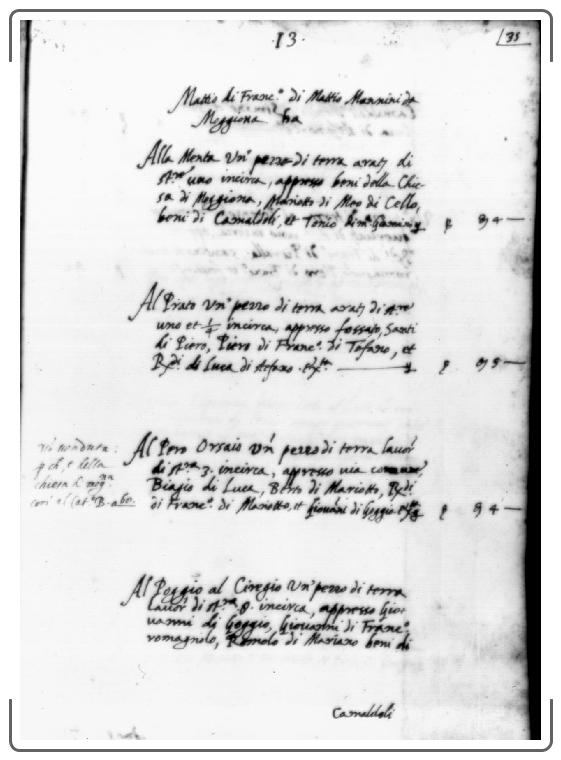 13.
35
Mattio di Franc.º di Mattio Mannini da
Moggiona ha
Alla Menta Un.º pezzo di terra arat.
di
st.ro uno incirca, appresso beni della Chie-
sa di Moggiona, Mariotto di Meo di Cello,
beni di Camaldoli, et Tonio di
4
Al Prato Un.º pezzo di terra arat. di st.ro
uno et 1/4 incirca, appresso fossato, Santi
di Piero, Piero di Franc.º di Tofano, et
Rede di Luca di Stefano
5
Al Pero Orsaio Un pezzo di terra lavor.
di st.ra 3. incirca, appresso via comune,
Biagio di Luca, Berto di Mariotto, Rede
di Franc.º di Mariotto, et Giovani di Goggio
4
della
chiesa
Al Poggio al Ciregio Un.º pezzo di terra
lavor. di st.ra 8. incirca, appresso Gio-
vanni di Goggio, Giovanni di Franc.º
romagnolo, Romolo di Mariano beni di
Camaldoli